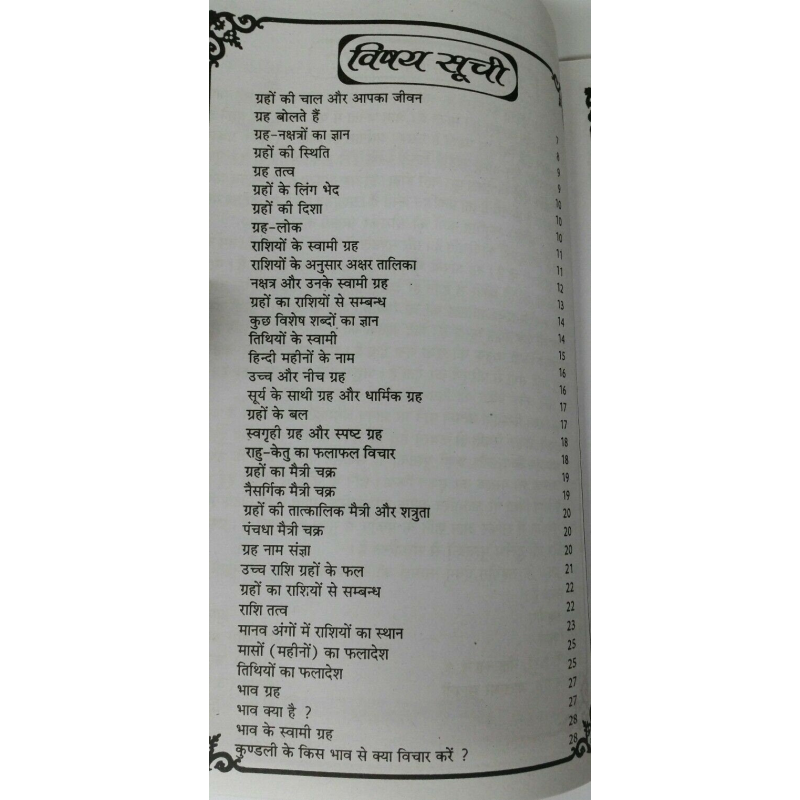 विषय सूची
ग्रहों की चाल और आपका जीवन 7
ग्रह बोलते हैं 8
ग्रह-नक्षत्रों का ज्ञान 9
ग्रहों की स्थिति 9
ग्रह तत्व 10
ग्रहों के लिंग भेद 10
ग्रहों की दिशा 10
ग्रह-लोक 11
राशियों के स्वामी ग्रह 11
राशियों के अनुसार अक्षर तालिका 12
नक्षत्र और उनके स्वामी ग्रह 13
ग्रहों का राशियों से सम्बन्ध 14
कुछ विशेष शब्दों का ज्ञान 14
तिथियों के स्वामी 15
हिन्दी महीनों के नाम 16
उच्च और नीच ग्रह 16
सूर्य के साथी ग्रह और धार्मिक ग्रह 17
ग्रहों के बल 17
स्वगृही ग्रह और स्पष्ट ग्रह 18
राहु-केतु का फलाफल विचार 18
ग्रहों का मैत्री चक्र 19
नैसर्गिक मैत्री चक्र 19
ग्रहों की तात्कालिक मैत्री और शत्रुता 20
पंचधा मैत्री चक्र 20
ग्रह नाम संज्ञा 20
उच्च राशि ग्रहों के फल 21
ग्रहों का राशियों से सम्बन्ध 22
राशि तत्व 22
मानव अंगों में राशियों का स्थान 23
मासों (महीनों) का फलादेश 25
तिथियों का फलादेश 25
भाव ग्रह 27
भाव क्या है ? 27
भाव के स्वामी ग्रह 28
कुण्डली के किस भाव से क्या विचार करें ? 28